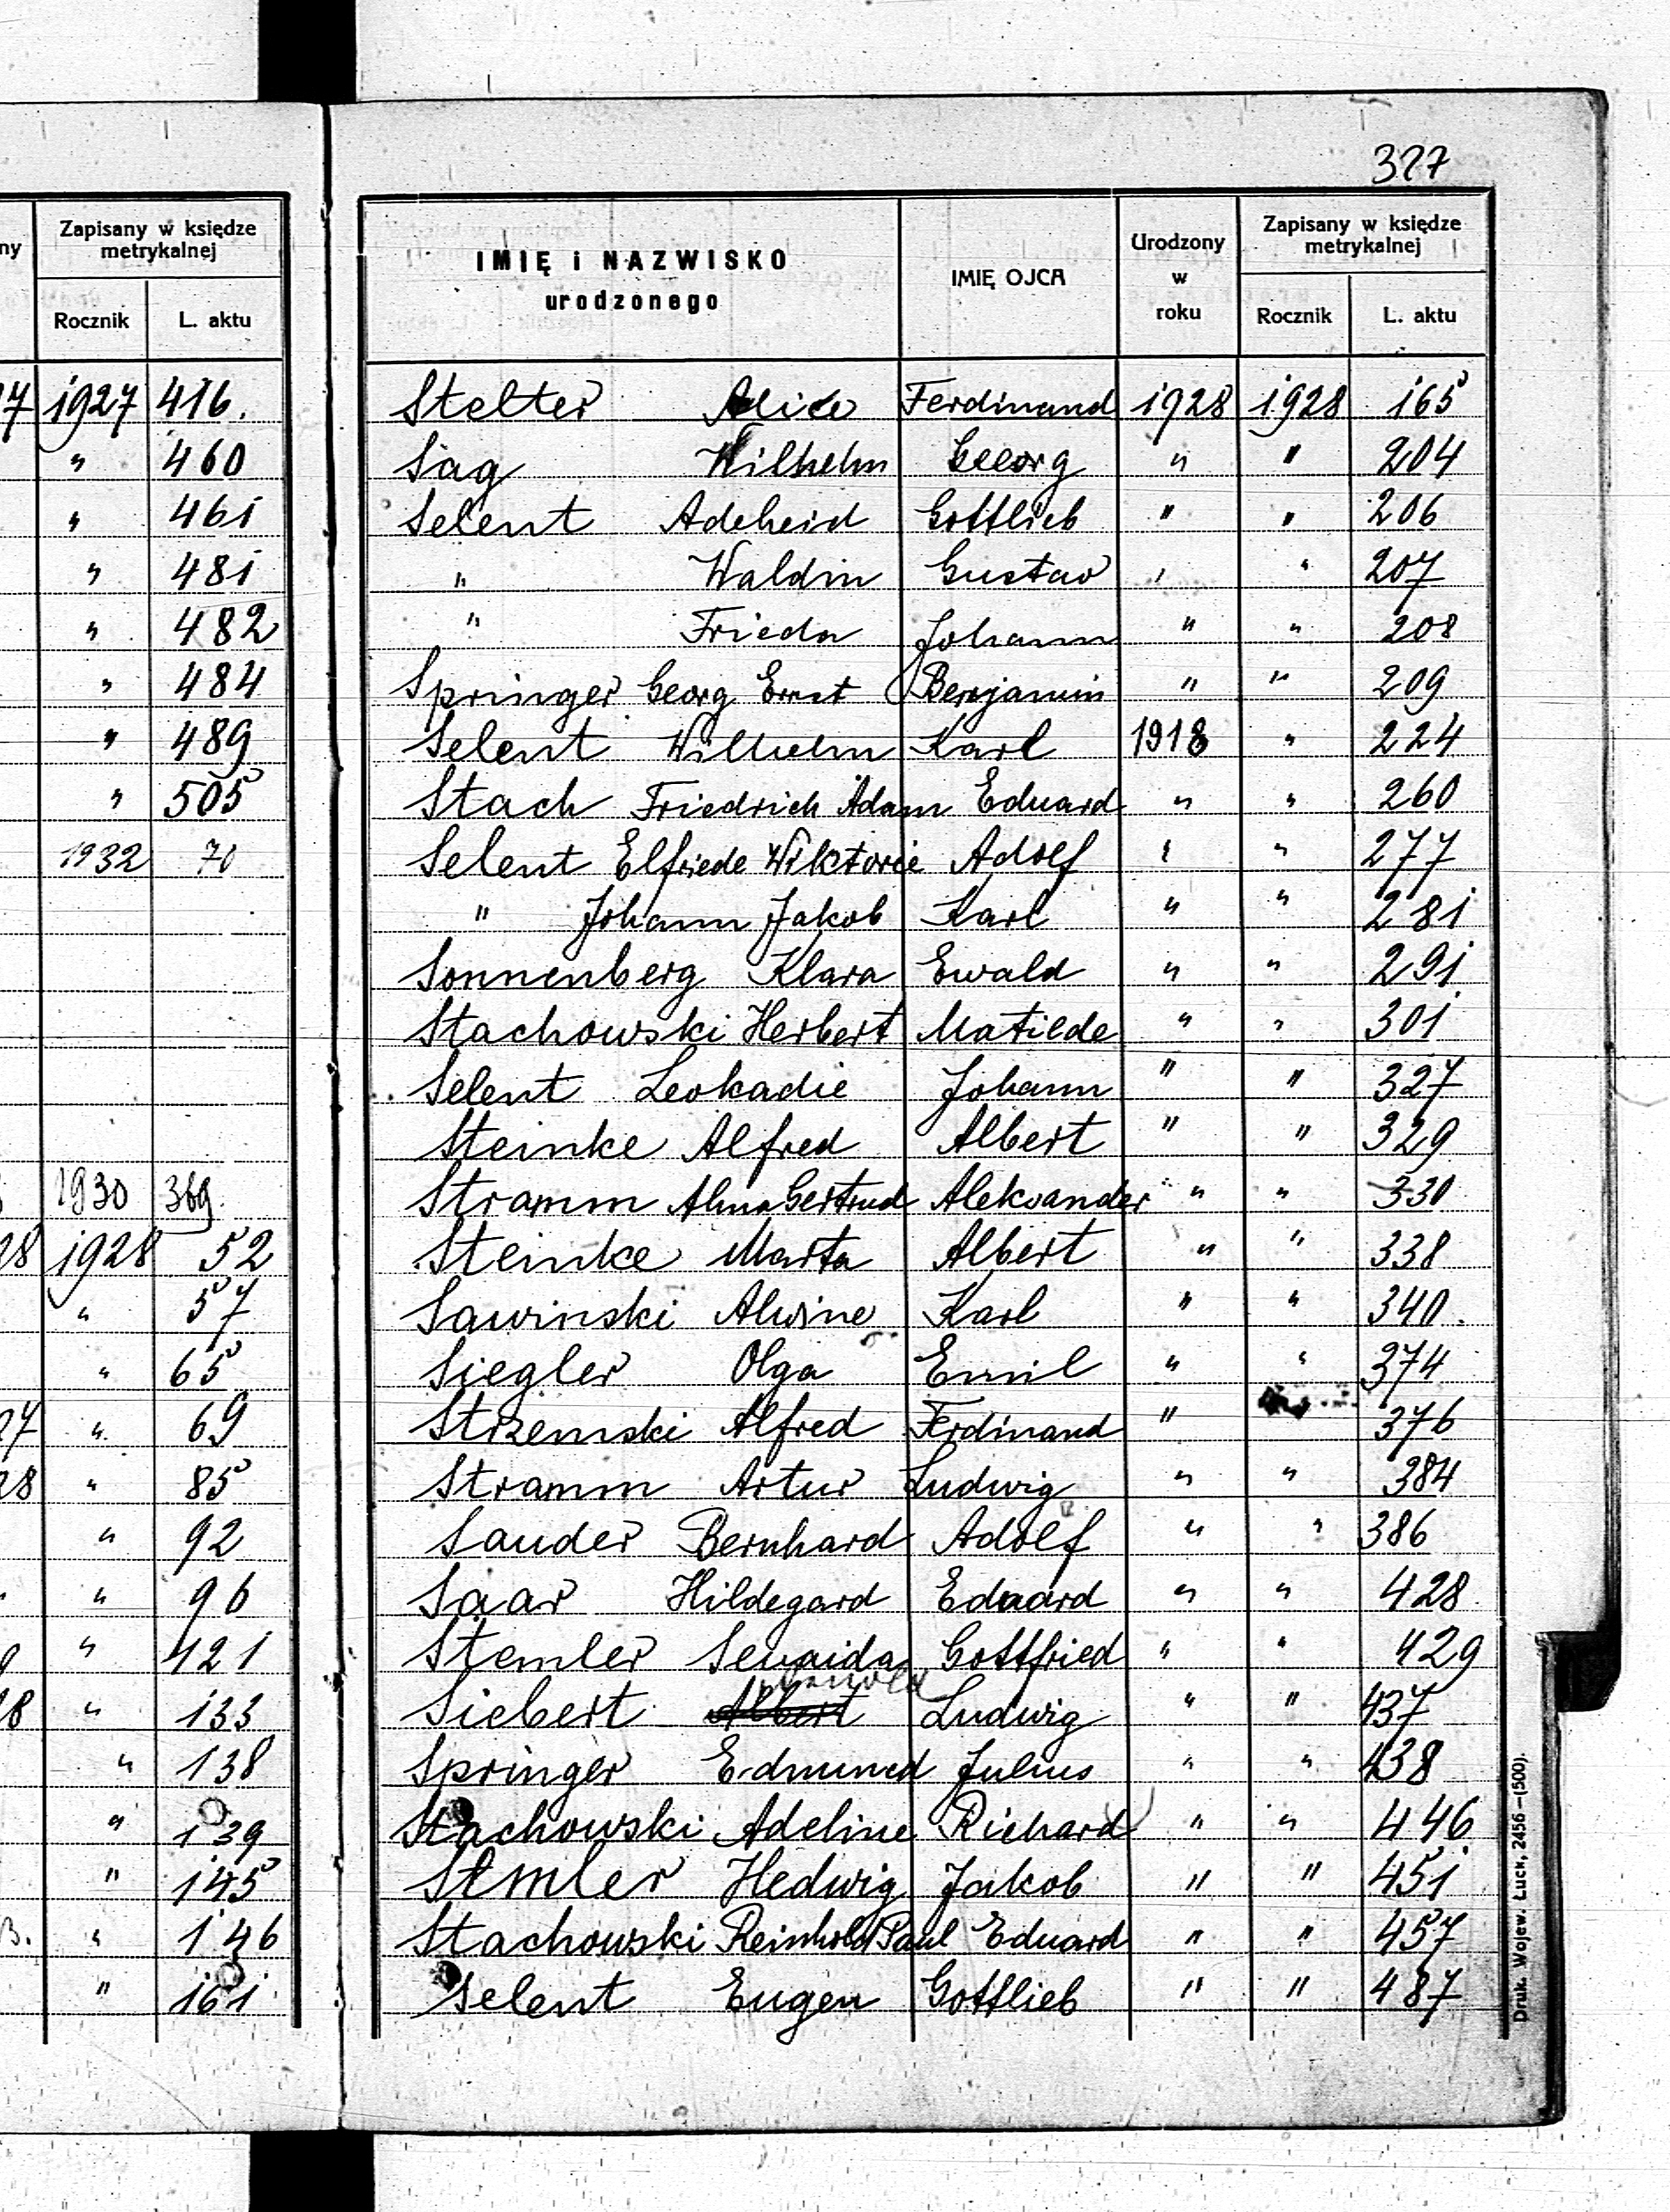 327
ny
Zapisany w księdze
metrykalnej
Rocznik L. aktu
17 1927 416.
" 460
" 461
" 481
" 482
" 484
" 489
" 505
1932 70
1930 369
28 1928 52
" 57
" 65
27 " 69
28 " 85
" 92
" 96
" 121
18 " 133
" 138
" 139
" 145
" 146
" 161
IMIĘ i NAZWISKO
urodzonego
IMIĘ OJCA
Urodzony
w
roku
Zapisany w księdze
metrykalnej
Rocznik L. aktu
Stelter Alice Ferdinand 1928 1928 165
Sag Wilhelm Georg " " 204
Selent Adeheid Gottlieb " " 206
" Waldin Gustav " " 207
" Frieda Johann " " 208
Springer Georg Ernst Benjamin " " 209
Selent Wilhelm Karl 1918 " 224
Stach Friedrich Adam Eduard " " 260
Selent Elfriede Wiktorie Adolf " " 277
" Johann Jakob Karl " " 281
Sonnenberg Klara Ewald " " 291
Stachowski Herbert Matilde " " 301
Selent Leokadie Johann " " 327
Steinke Alfred Albert " " 329
Stramm Alma Gertrud Aleksander " " 330
Steinke Marta Albert " " 338
Sawinski Alwine Karl " " 340.
Siegler Olga Emil " " 374
Strzemski Alfred Ferdinand " 376
Stramm Artur Ludwig " " 384
Sauder Bernhard Adolf " " 386
Saar Hildegard Eduard " " 428
Stemler Senaida Gottfried " " 429
Siebert Albert Ludwig " " 437
Springer Edmund Julius " " 438
Stachowski Adeline Richard " " 446
Stmler Hedwig Jakob " " 451
Stachowski Reinhold Paul Eduard " " 457
Selent Eugen Gottlieb " " 487
Druk. Wojew. Łuck, 2456—(500).